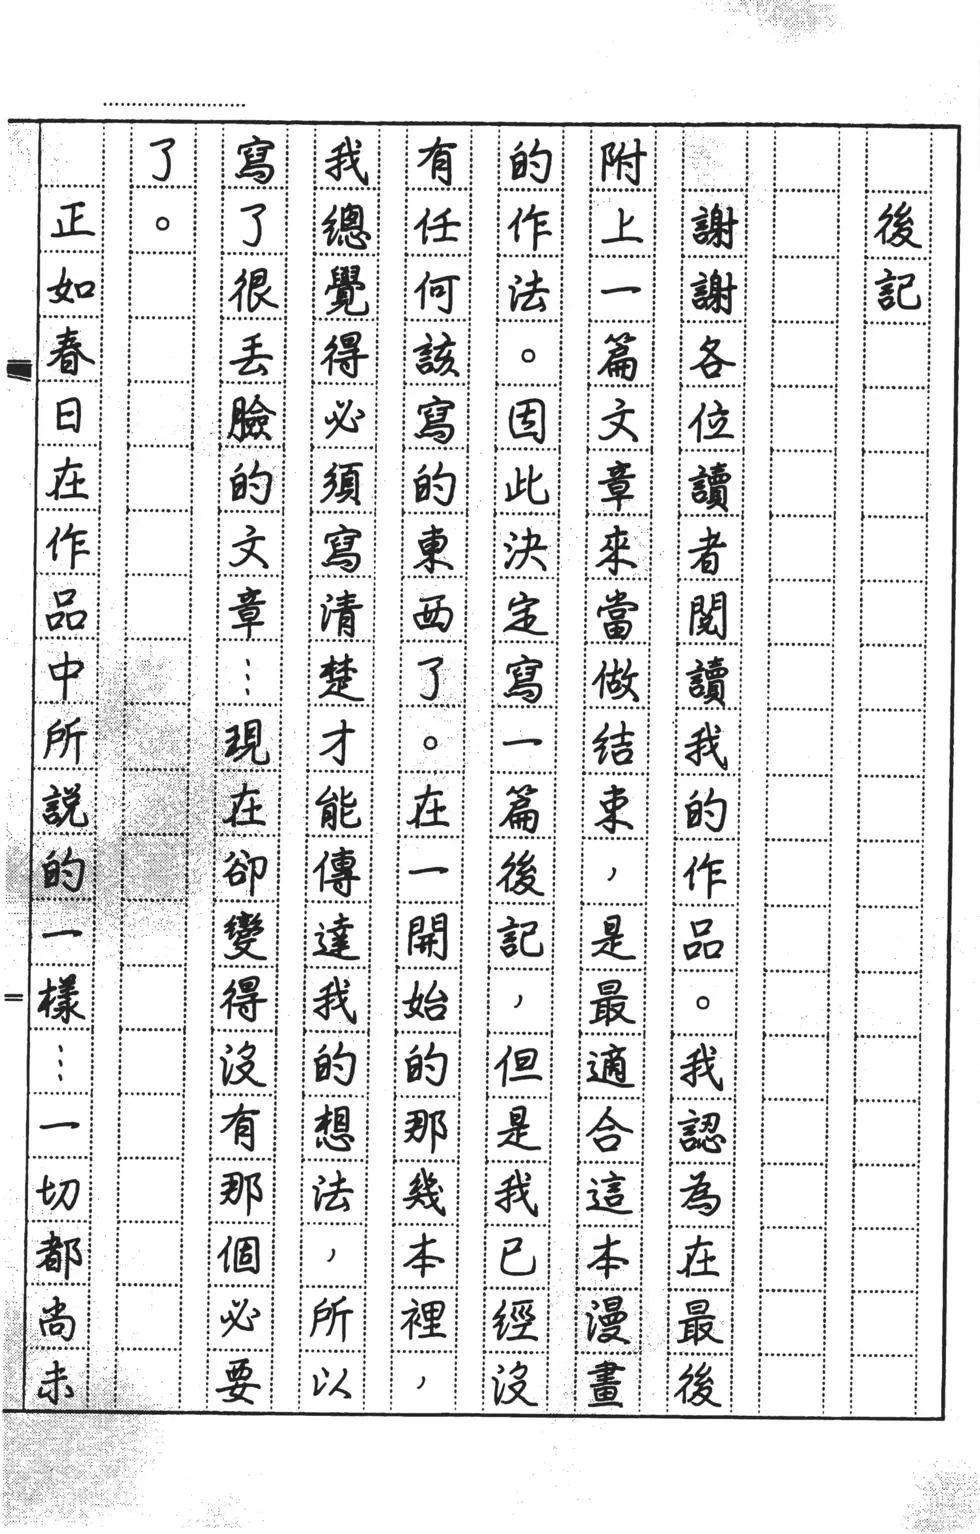 後記
謝謝各位讀者閱讀我的作品。我認為在最後
附上一篇文章來當做結束，是最適合這本漫畫
的作法。因此決定寫一篇後記，但是我已經沒
有任何該寫的東西了。在一開始的那幾本裡，
我總覺得必須寫清楚才能傳達我的想法，所以
寫了很丟臉的文章…現在卻變得沒有那個必要
了。
正如春日在作品中所說的一樣…一切都尚未